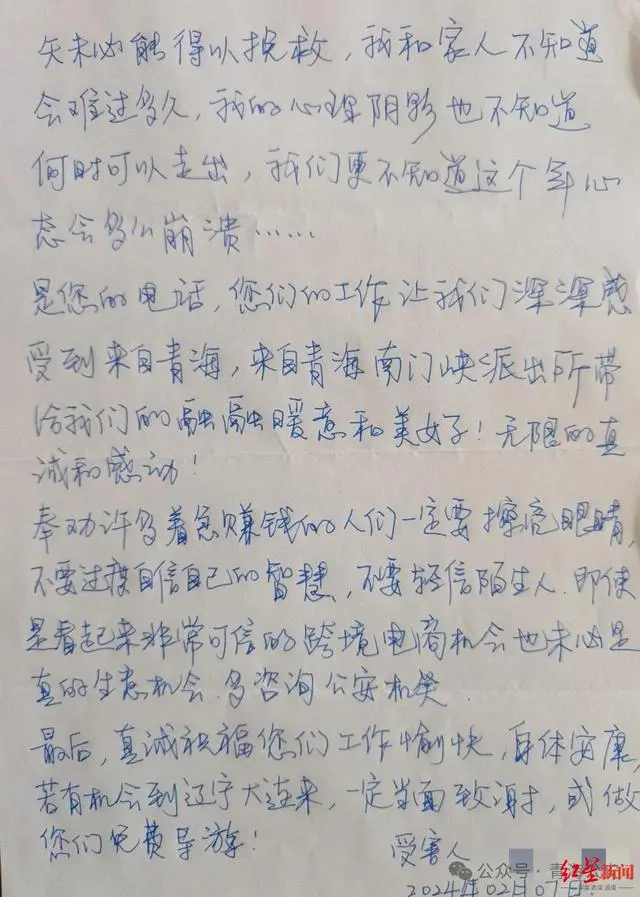 矢未必能得以挽救，我和家人不知道
会难过多久，我的心理阴影也不知道
何时可以走出，我们更不知道这个年心
态会多么崩溃……
是您的电话，您们的工作让我们深深感
受到来自青海，来自青海南门峡派出所带
给我们的融融暖意和美好！无限的真
诚和感动！
奉劝许多着急赚钱的人们一定要擦亮眼睛，
不要过度自信自己的智慧，不要轻信陌生人，即使
是看起来非常可信的跨境电商机会也未必是
真的生意机会，多咨询公安机关
最后，真诚祝福您们工作愉快，身体安康，
若有机会到辽宁大连来，一定当面致谢，或做
您们免费导游！
受害人
公众号·青海
红星新闻
2024年02月07日